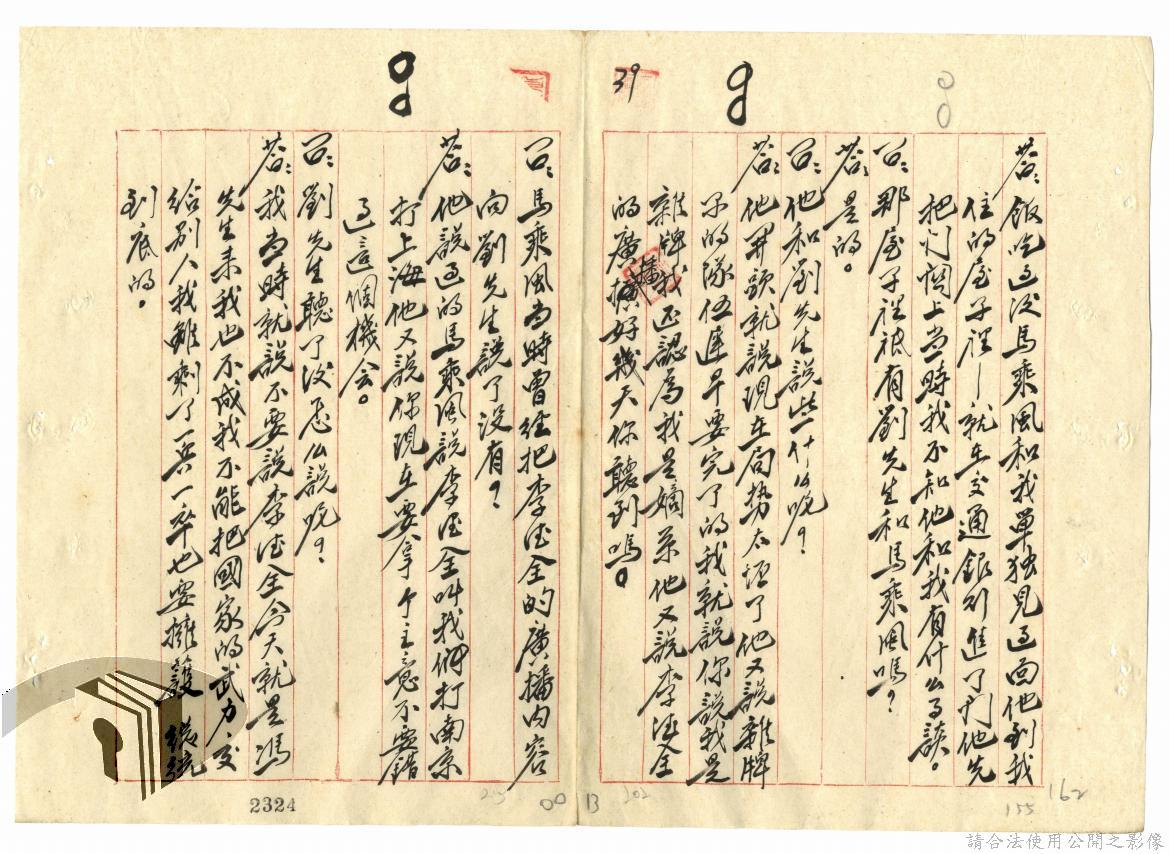 39
答:飯吃過後馬乘風和我單独見過面他到我
住的屋子裡—就在交通銀行進了門他先
把门関上当時我不知他和我有什么事談。
问:那屋子裡祇有劉先生和馬乘風嗎?
答:是的。
问:他和劉先生說些什么呢?
答:他开頭就說現在局势太坏了他又說雜牌
子的隊伍遅早要完了的我就說你說我是
雜牌我还認為我是嫡系他又說李德全
的廣播好幾天你聽到嗎。
问:馬乘風当時曾經把李德全的廣播内容
向劉先生說了没有?
答:他說过的馬乘風說李德全叫我们打南京
打上海他又說你現在要拿个主意不要錯
过這個機会。
问:劉先生聽了没怎么說呢?
答:我当時就說不要說李德全今天就是馮
先生来我也不成我不能把國家的武力交
給别人我雖剩了一兵一卒也要擁護 總統
到底的。
2324
202
B
155
162
請合法使用公開之影像